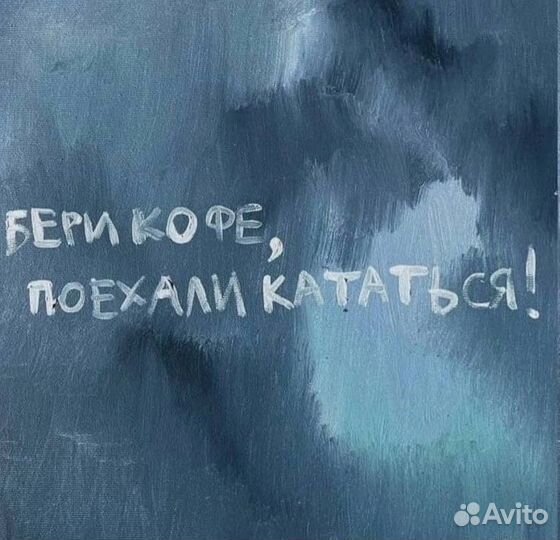 БЕРИ КОФЕ,
ПОЕХАЛИ КАТАТЬСЯ!
Avito